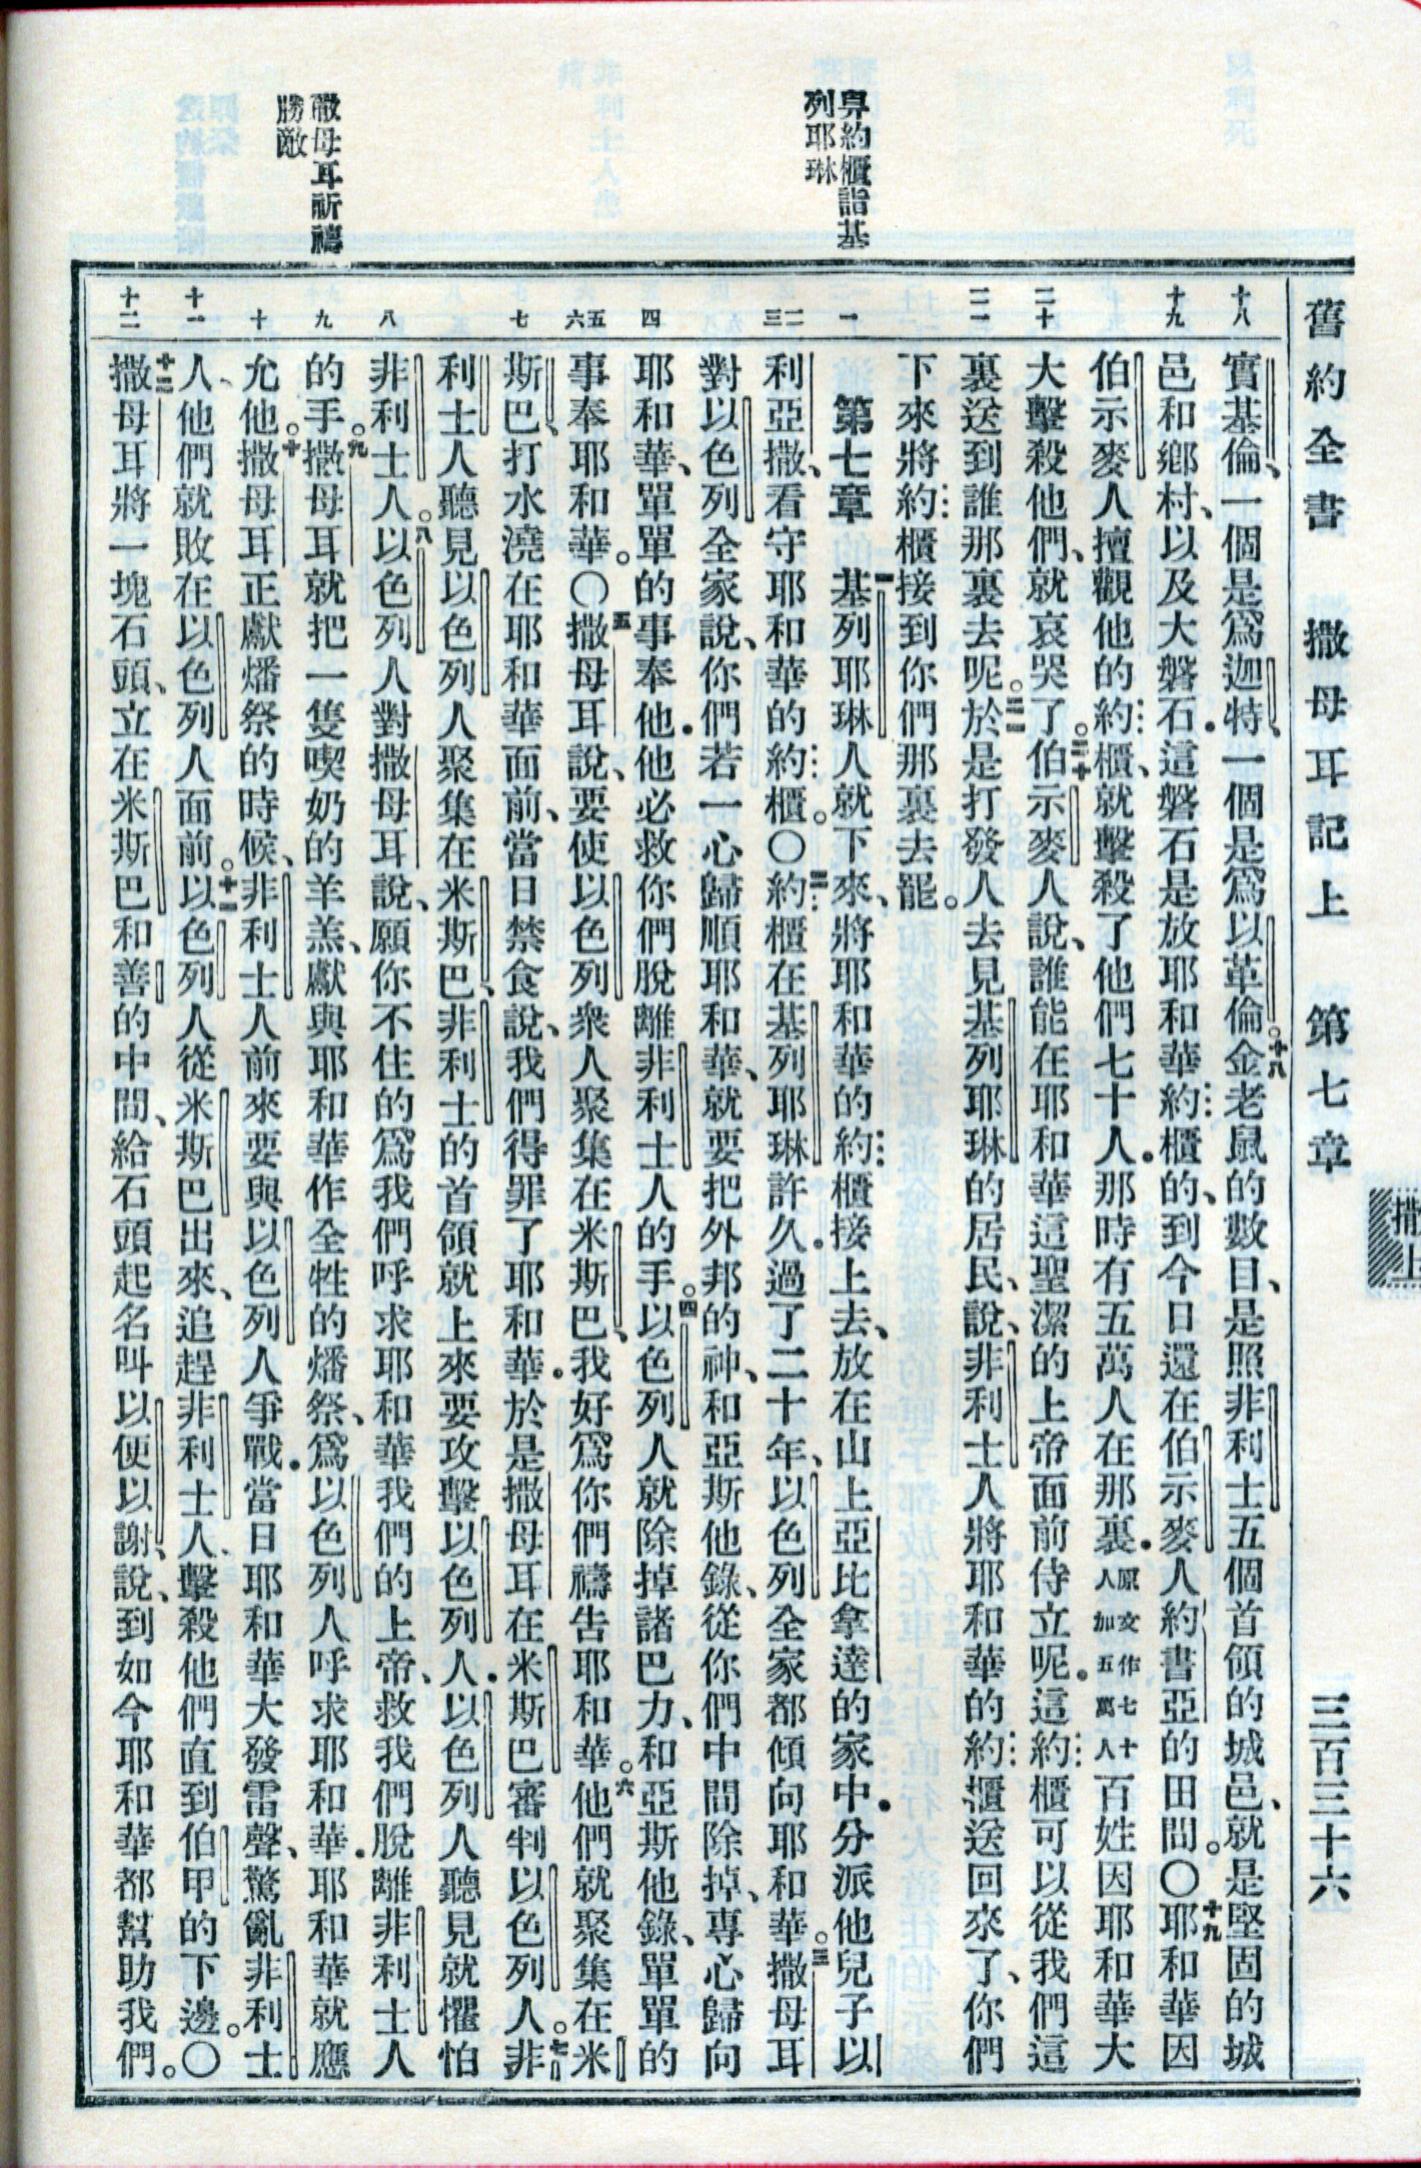 舊約全書 撒母耳記上 第七章 三百三十六
撒上
舁約櫃詣基
列耶琳
撒母耳祈禱
勝敵
十八
實基倫、一個是爲迦特、一個是爲以革倫。十八金老鼠的數目、是照非利士五個首領的城邑、就是堅固的城
十九
邑和鄉村、以及大磐石．這磐石是放耶和華約櫃的、到今日還在伯示麥人約書亞的田間。〇十九耶和華因
伯示麥人擅觀他的約櫃、就擊殺了他們七十人．那時有五萬人在那裏．原文作七十人加五萬人百姓因耶和華大
二十
大擊殺他們、就哀哭了。二十伯示麥人說、誰能在耶和華這聖潔的上帝面前侍立呢．這約櫃可以從我們這
二一
裏送到誰那裏去呢。二一於是打發人去見基列耶琳的居民、說、非利士人將耶和華的約櫃送回來了、你們
下來將約櫃接到你們那裏去罷。
一
第七章 一基列耶琳人就下來、將耶和華的約櫃接上去、放在山上亞比拿達的家中．分派他兒子以
二三
利亞撒、看守耶和華的約櫃。〇二約櫃在基列耶琳許久．過了二十年、以色列全家都傾向耶和華。三撒母耳
對以色列全家說、你們若一心歸順耶和華、就要把外邦的神、和亞斯他錄、從你們中間除掉、專心歸向
四
耶和華、單單的事奉他．他必救你們脫離非利士人的手。四以色列人就除掉諸巴力、和亞斯他錄、單單的
五六
事奉耶和華。〇五撒母耳說、要使以色列衆人聚集在米斯巴、我好爲你們禱告耶和華。六他們就聚集在米
七
斯巴、打水澆在耶和華面前、當日禁食、說、我們得罪了耶和華．於是撒母耳在米斯巴審判以色列人。七非
利士人聽見以色列人聚集在米斯巴、非利士的首領就上來要攻擊以色列人．以色列人聽見就懼怕
八
非利士人。八以色列人對撒母耳說、願你不住的爲我們呼求耶和華我們的上帝、救我們脫離非利士人
九
的手。九撒母耳就把一隻喫奶的羊羔、獻與耶和華作全牲的燔祭、爲以色列人呼求耶和華．耶和華就應
十
允他。十撒母耳正獻燔祭的時候、非利士人前來要與以色列人爭戰．當日耶和華大發雷聲、驚亂非利士
十一
人、他們就敗在以色列人面前。十一以色列人從米斯巴出來、追趕非利士人、擊殺他們直到伯甲的下邊。〇
十二
十二撒母耳將一塊石頭、立在米斯巴和善的中間、給石頭起名叫以便以謝、說、到如今耶和華都幫助我們。